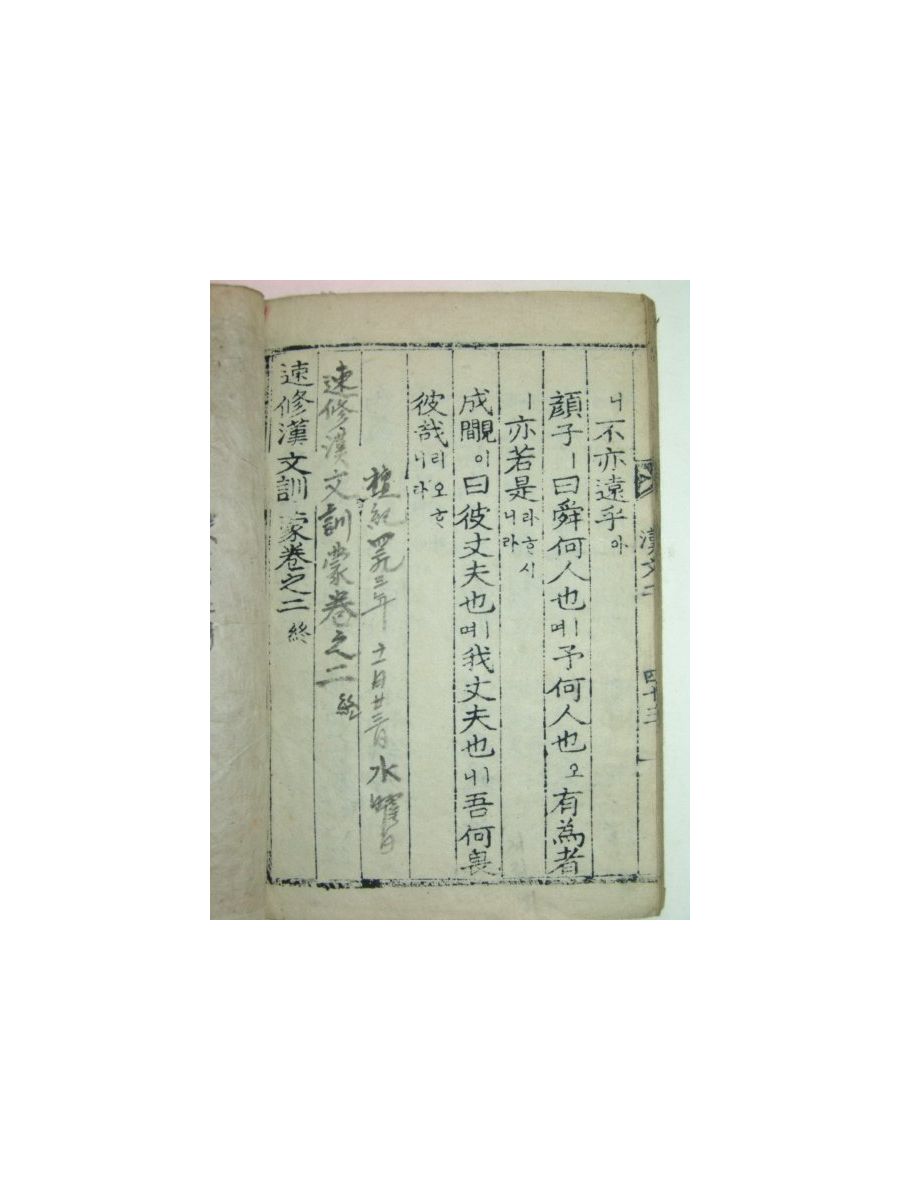 漢文二 四十三
니不亦遠乎아
顔子ㅣ曰舜何人也예予何人也오有爲者
ㅣ亦若是라ᄒᆞ시니라
成覵이曰彼丈夫也예我丈夫也니吾何畏
彼哉리오ᄒᆞ니라
檀紀四二九三年 十一月廿三日 水曜日
速修漢文訓蒙卷之二 終
速修漢文訓蒙卷之二 終